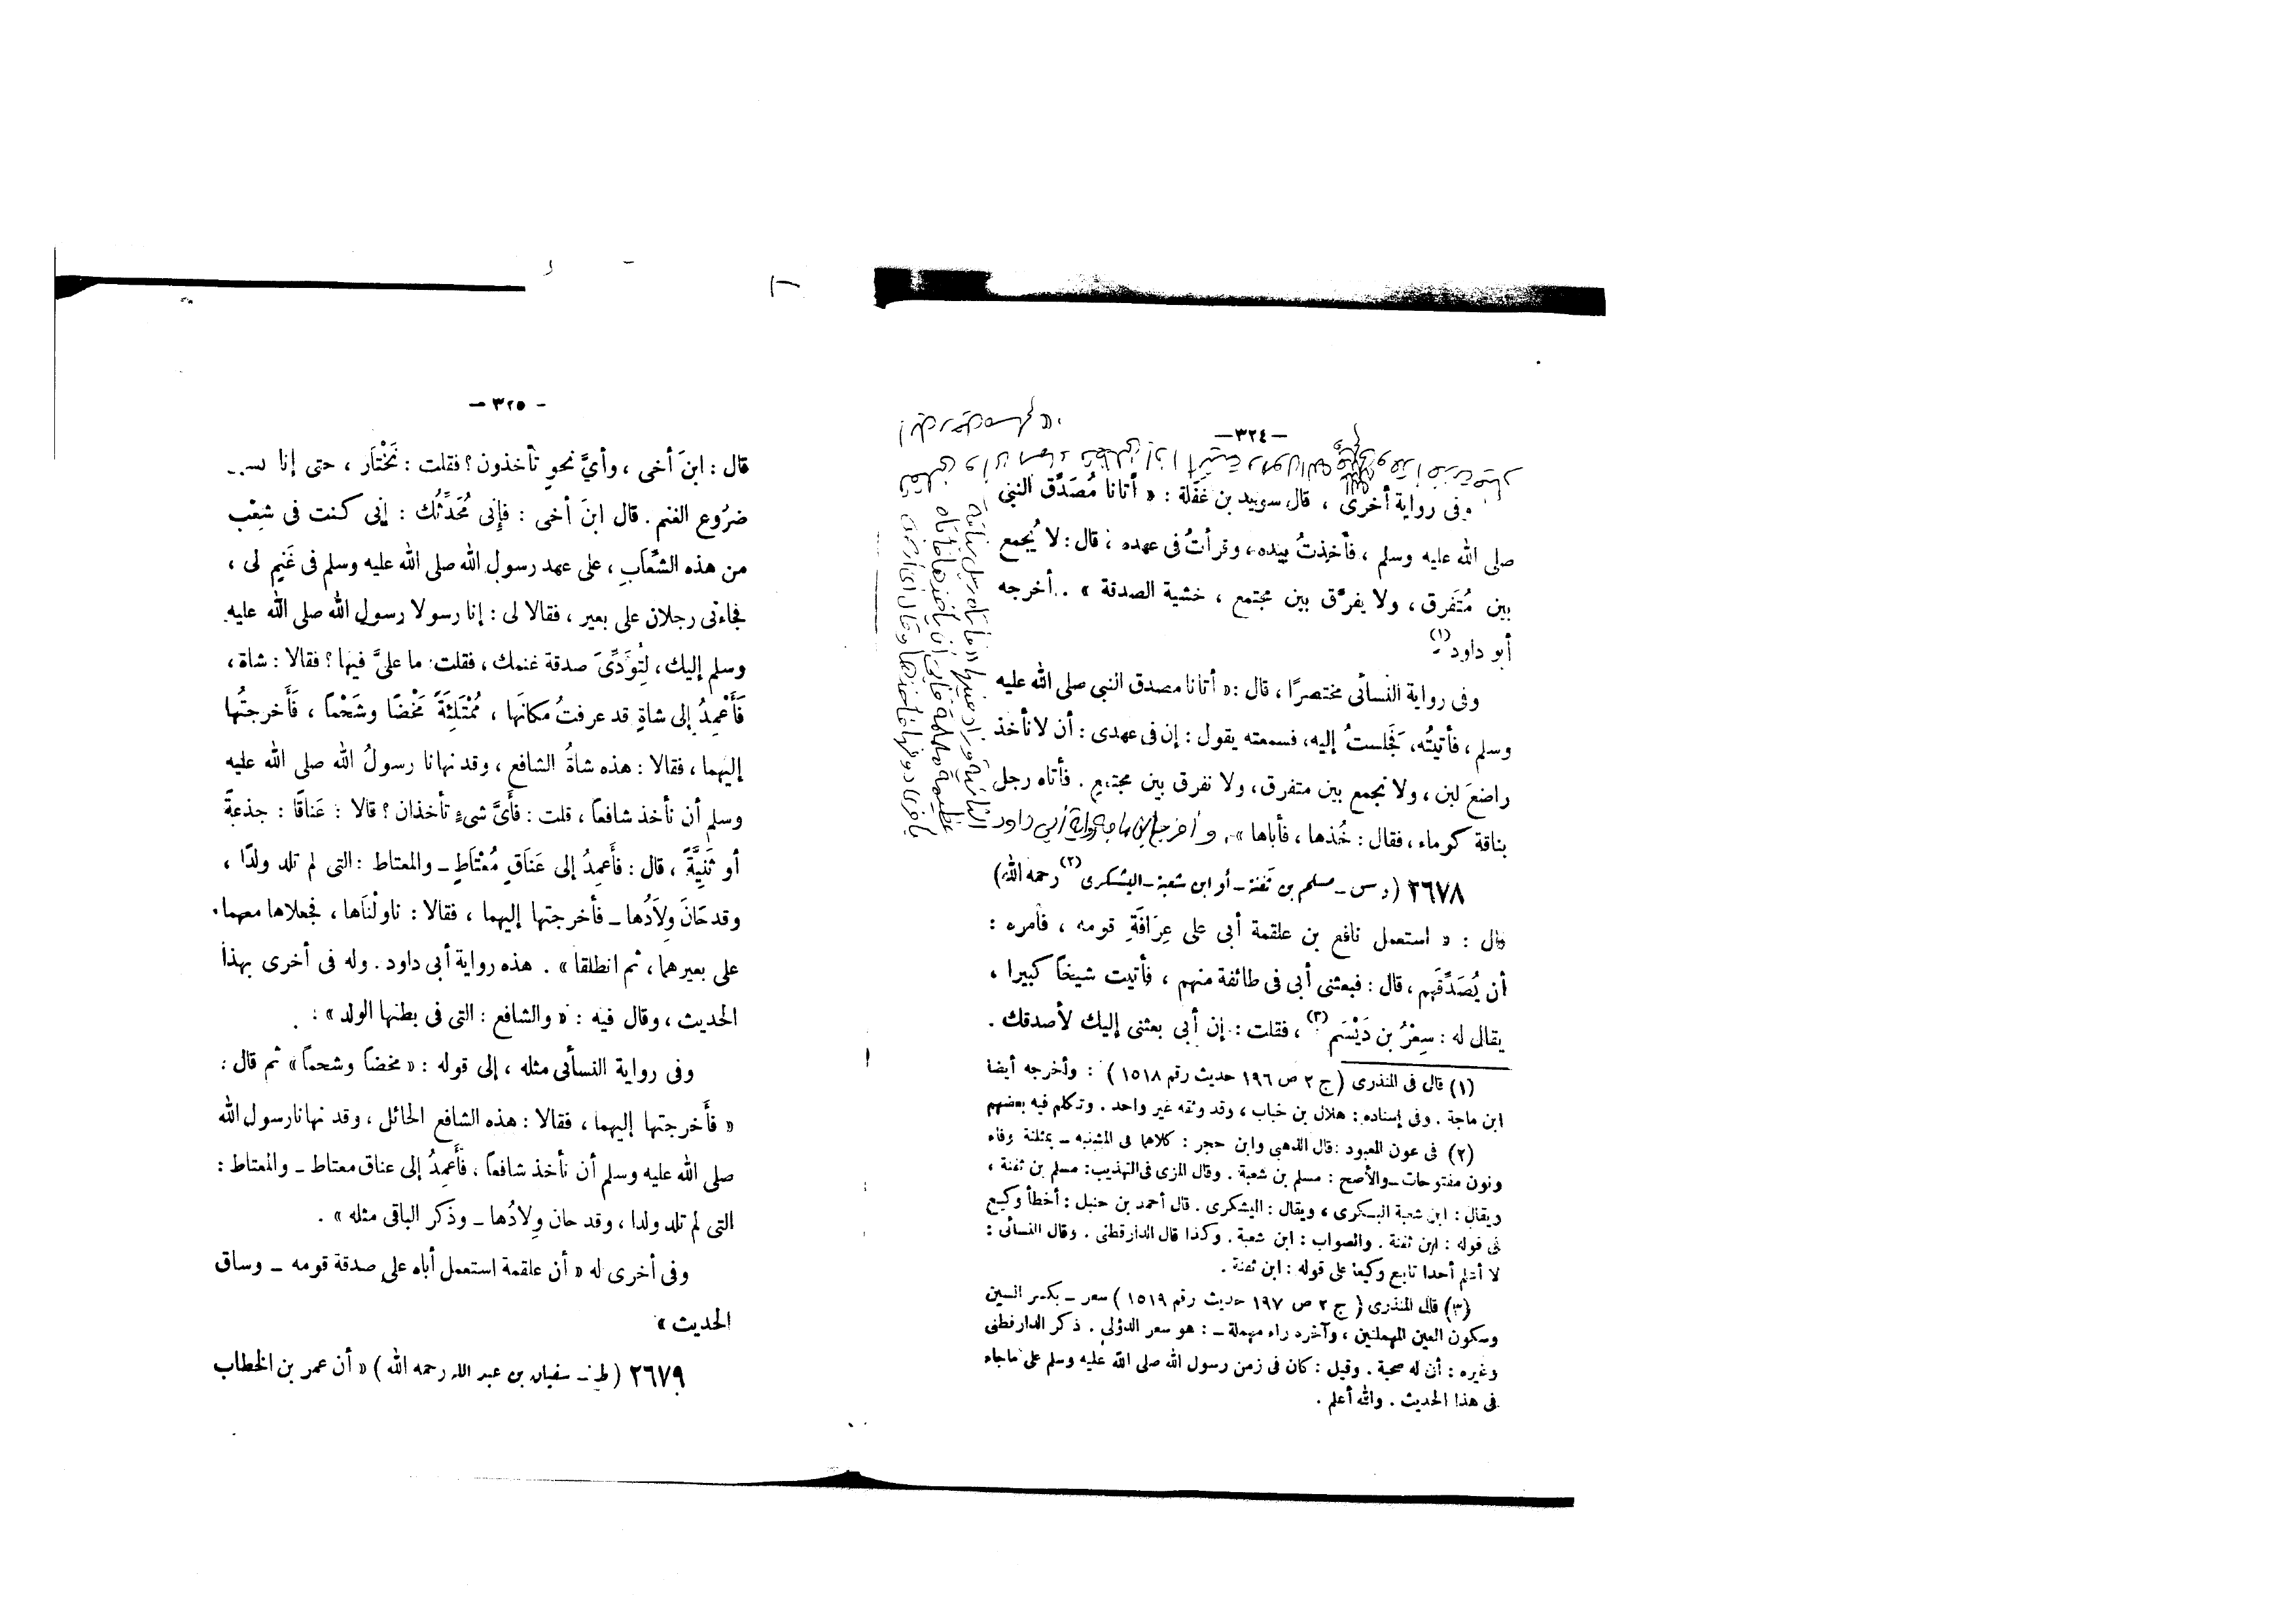 — ٣٢٤ —
وفى رواية أخرى ، قال سويد بن غَفَلة : « أتانا مُصَدِّق النبي
صلى الله عليه وسلم ، فأخذتُ بيده ، وقرأتُ فى عهده ، قال : لا يُجمع
بين مُتَفرق ، ولا يفرَّق بين مجتمع ، خشية الصدقة » . أخرجه
أبو داود (١) .
وفى رواية النسائى مختصرًا ، قال : « أتانا مصدق النبى صلى الله عليه
وسلم ، فأتيتُه ، فجلستُ إليه ، فسمعته يقول : إن فى عهدى : أن لا نأخذ
راضعَ لبن ، ولا نجمع بين متفرق ، ولا نفرق بين مجتمع . فأتاه رجل
بناقة كوماء ، فقال : خُذها ، فأباها » . وأخرج ابن ماجة رواية أبى داود
٢٦٧٨ ( د س ـ مسلم بن ثَفنة ـ أو ابن شعبة ـ اليشكرى (٢) رحمه الله )
قال : « استعمل نافع بن علقمة أبى على عِرَافَةِ قومه ، فأمره :
أن يُصَدِّقَهم ، قال : فبعثنى أبى فى طائفة منهم ، فأتيت شيخاً كبيرا ،
يقال له : سِعْرُ بن دَيْسَم (٣) ، فقلت : إن أبى بعثنى إليك لأصدقك .
(١) قال فى المنذرى ( ج ٢ ص ١٩٦ حديث رقم ١٥١٨ ) : وأخرجه أيضا
ابن ماجة . وفى إسناده : هلال بن خباب ، وقد وثقه غير واحد . وتكلم فيه بعضهم
(٢) فى عون المعبود : قال الذهبى وابن حجر : كلاهما فى المشتبه ـ بمثلثة وفاء
ونون مفتوحات ـ والأصح : مسلم بن شعبة . وقال المزى فى التهذيب : مسلم بن ثفنة ،
ويقال : ابن شعبة البكرى ، ويقال : اليشكرى . قال أحمد بن حنبل : أخطأ وكيع
فى قوله : ابن ثفنة . والصواب : ابن شعبة . وكذا قال الدارقطنى . وقال النسائى :
لا أعلم أحدا تابع وكيعا على قوله : ابن ثفنة .
(٣) قال المنذرى ( ج ٢ ص ١٩٧ حديث رقم ١٥١٩ ) سعر ـ بكسر السين
وسكون العين المهملتين ، وآخره راء مهملة ـ : هو سعر الدؤلى . ذكر الدارقطنى
وغيره : أن له صحبة . وقيل : كان فى زمن رسول الله صلى الله عليه وسلم على ما جاء
فى هذا الحديث . والله أعلم .
— ٣٢٥ —
قال : ابنَ أخى ، وأىَّ نحوٍ تأخذون ؟ فقلت : نَخْتَار ، حتى إنا
ضرُوع الغنم . قال ابنَ أخى : فإنى مُحَدِّثُك : إنى كنت فى شِعْب
من هذه الشِّعَابِ ، على عهد رسول الله صلى الله عليه وسلم فى غَنمٍ لى ،
فجاءنى رجلان على بعير ، فقالا لى : إنا رسولا رسول الله صلى الله عليه
وسلم إليك ، لِتُؤَدِّىَ صدقة غنمك ، فقلت : ما علىَّ فيها ؟ فقالا : شاة ،
فَأَعْمِدُ إلى شاةٍ قد عرفتُ مكانَها ، مُمْتَلِئَةً مَحْضًا وشَحْمًا ، فَأَخرجتُها
إليهما ، فقالا : هذه شاةُ الشافع ، وقد نهانا رسولُ الله صلى الله عليه
وسلم أن نأخذ شافعًا ، قلت : فأَىَّ شىءٍ تأخذان ؟ قالا : عَناقًا : جذعةً
أو ثَنِيَّةً ، قال : فأَعمِدُ إلى عَنَاقٍ مُعْتَاطٍ ـ والمعتاط : التى لم تلد ولدًا ،
وقد حَانَ وِلاَدُها ـ فأخرجتها إليهما ، فقالا : ناولْنَاها ، فجعلاها معهما
على بعيرهما ، ثم انطلقا » . هذه رواية أبى داود . وله فى أخرى بهذا
الحديث ، وقال فيه : « والشافع : التى فى بطنها الولد » .
وفى رواية النسائى مثله ، إلى قوله : « محضاً وشحماً » ثم قال :
« فأَخرجتها إليهما ، فقالا : هذه الشافع الحائل ، وقد نهانا رسول الله
صلى الله عليه وسلم أن نأخذ شافعًا ، فأَعمِدُ إلى عناق معتاط ـ والمعتاط :
التى لم تلد ولدا ، وقد حان وِلادُها ـ وذكر الباقى مثله » .
وفى أخرى له « أن علقمة استعمل أباه على صدقة قومه ـ وساق
الحديث »
٢٦٧٩ ( ط ـ سفيان بن عبد الله رحمه الله ) « أن عمر بن الخطاب